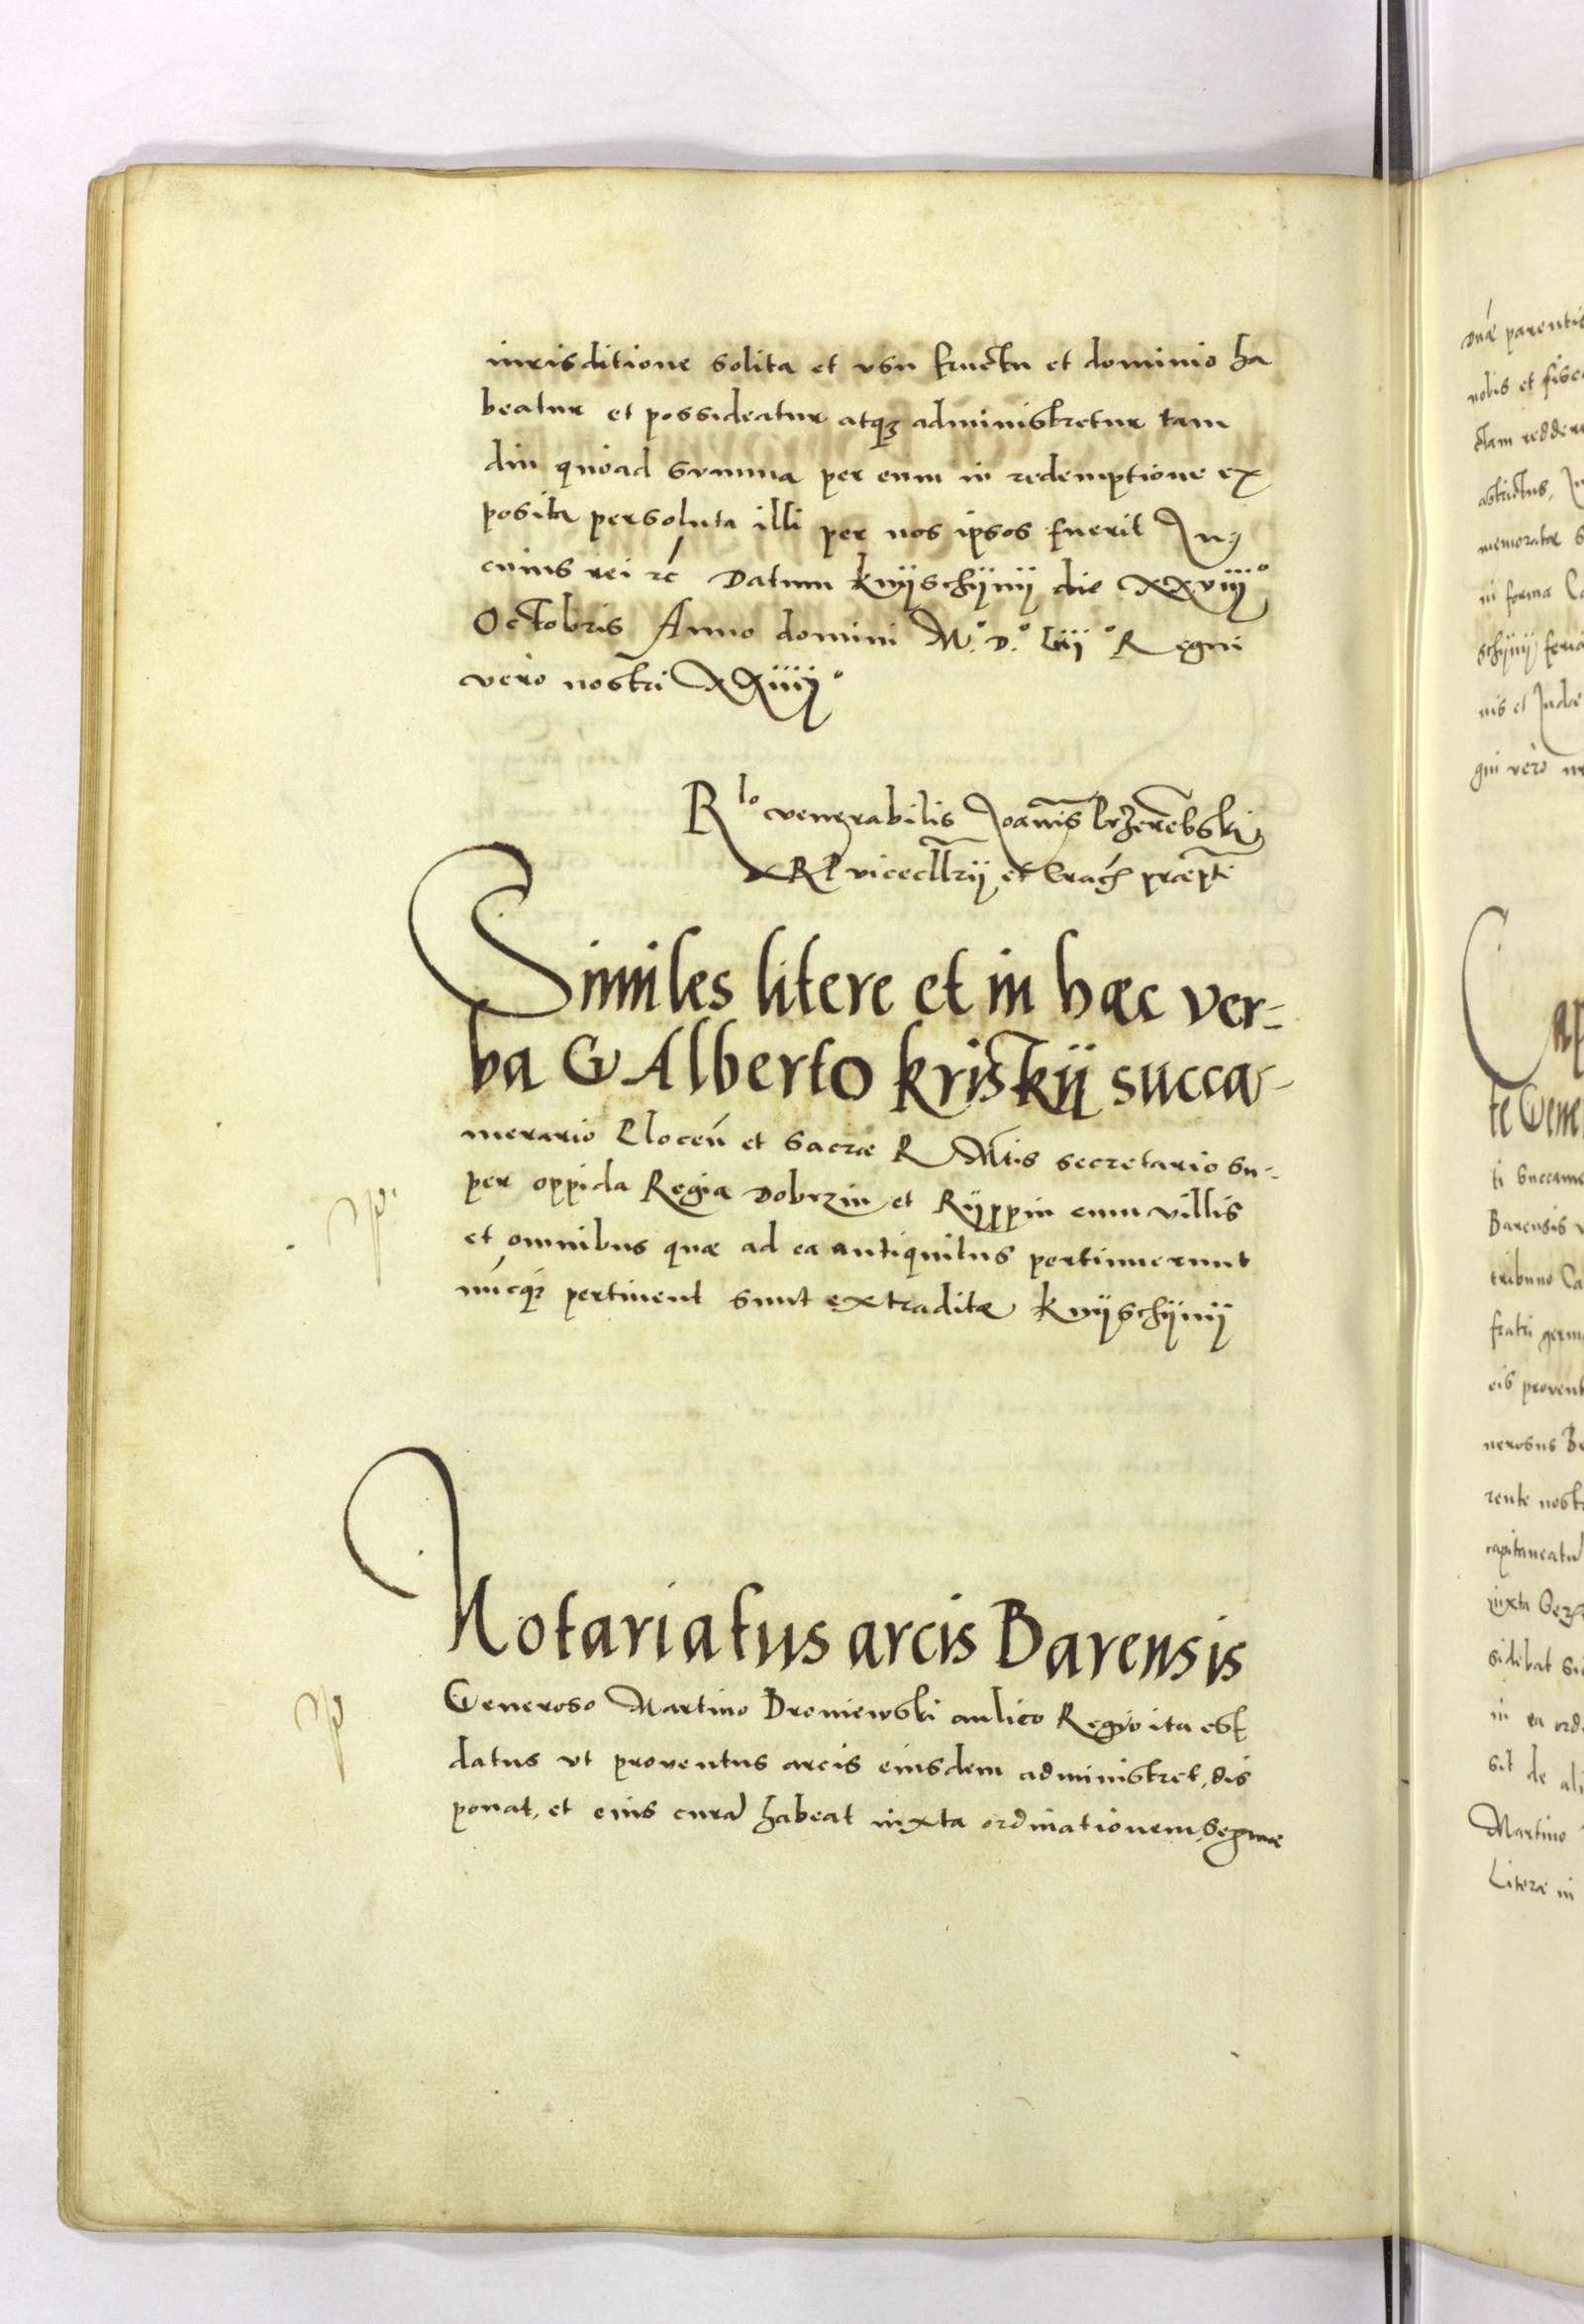 iurisditione solita et vsu fructu et dominio ha
beatur et possideatur atq; administretur tam
diu quoad summa per eum in redemptione ex
posita persoluta illi per nos ipsos fuerit In
cuius rei &c Datum knÿschÿnÿ die xxviii°
Octobris Anno domini M.° D.° liii° Regni
vero nostri XXiiii°
R lo venerabilis Joanis Przerebski
R P vicecllrij et Crac praeptj
Similes litere et in haec ver=
ba G Alberto kriskij succa-
merario Plocen et Sacrae R Mtis secretario su=
per oppida Regia Dobrzin et Rÿppin cum villis
et omnibus quae ad ea antiquitus pertinuerunt
nucq; pertinent sunt extraditae knÿschÿnÿ
Notariatus arcis Barensis
Generoso Martino Droniewski aulico Regio ita est
datus vt proventus arcis eiusdem administret, dis
ponat, et eius curam habeat iuxta ordinationem
onae parentis
nobis et fisc
ctam redder
astrictus,
memoratae s
in forma
schÿnÿ feria
nis et Judae
gni vero
te Gene
ti succame
Barensis
tribuno Ca
fratri germ
eis provent
nerosus
rente nost
capitaneatu
iuxta
in ea ord
sit de ali
Martino
Literae in